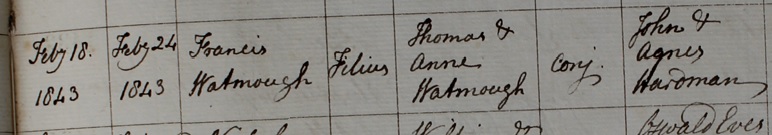 Feby 18. 1843
Feby 24 1843
Francis Watmough
Filius
Thomas & Anne Watmough
conj.
John & Agnes Hardman
Oswald Eves